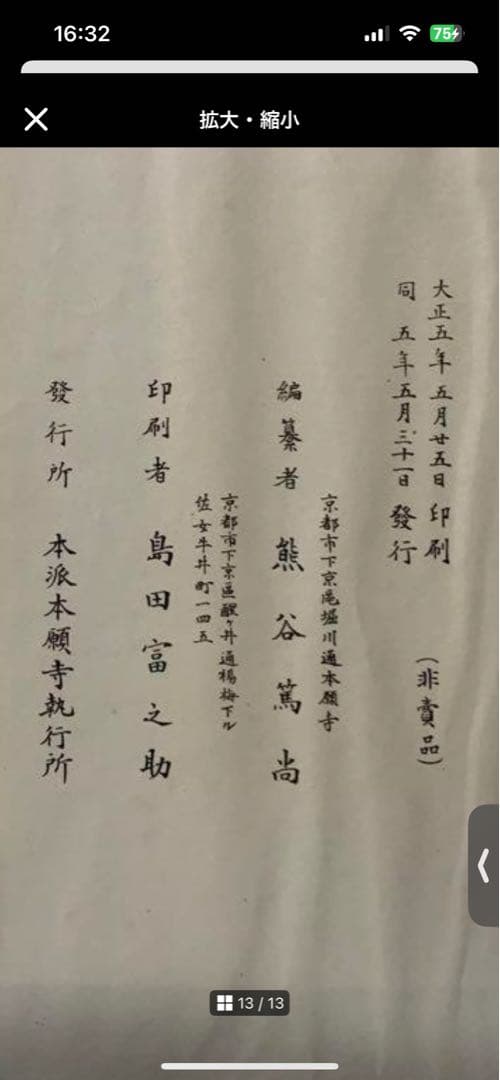 16:32
75
拡大・縮小
大正五年五月廿五日印刷
同五年五月三十一日發行
(非賣品)
京都市下京區堀川通本願寺
編纂者 熊谷篤尚
京都市下京區醒ヶ井通楊梅下ル
佐女牛井町一四五
印刷者 島田富之助
發行所 本派本願寺執行所
13 / 13